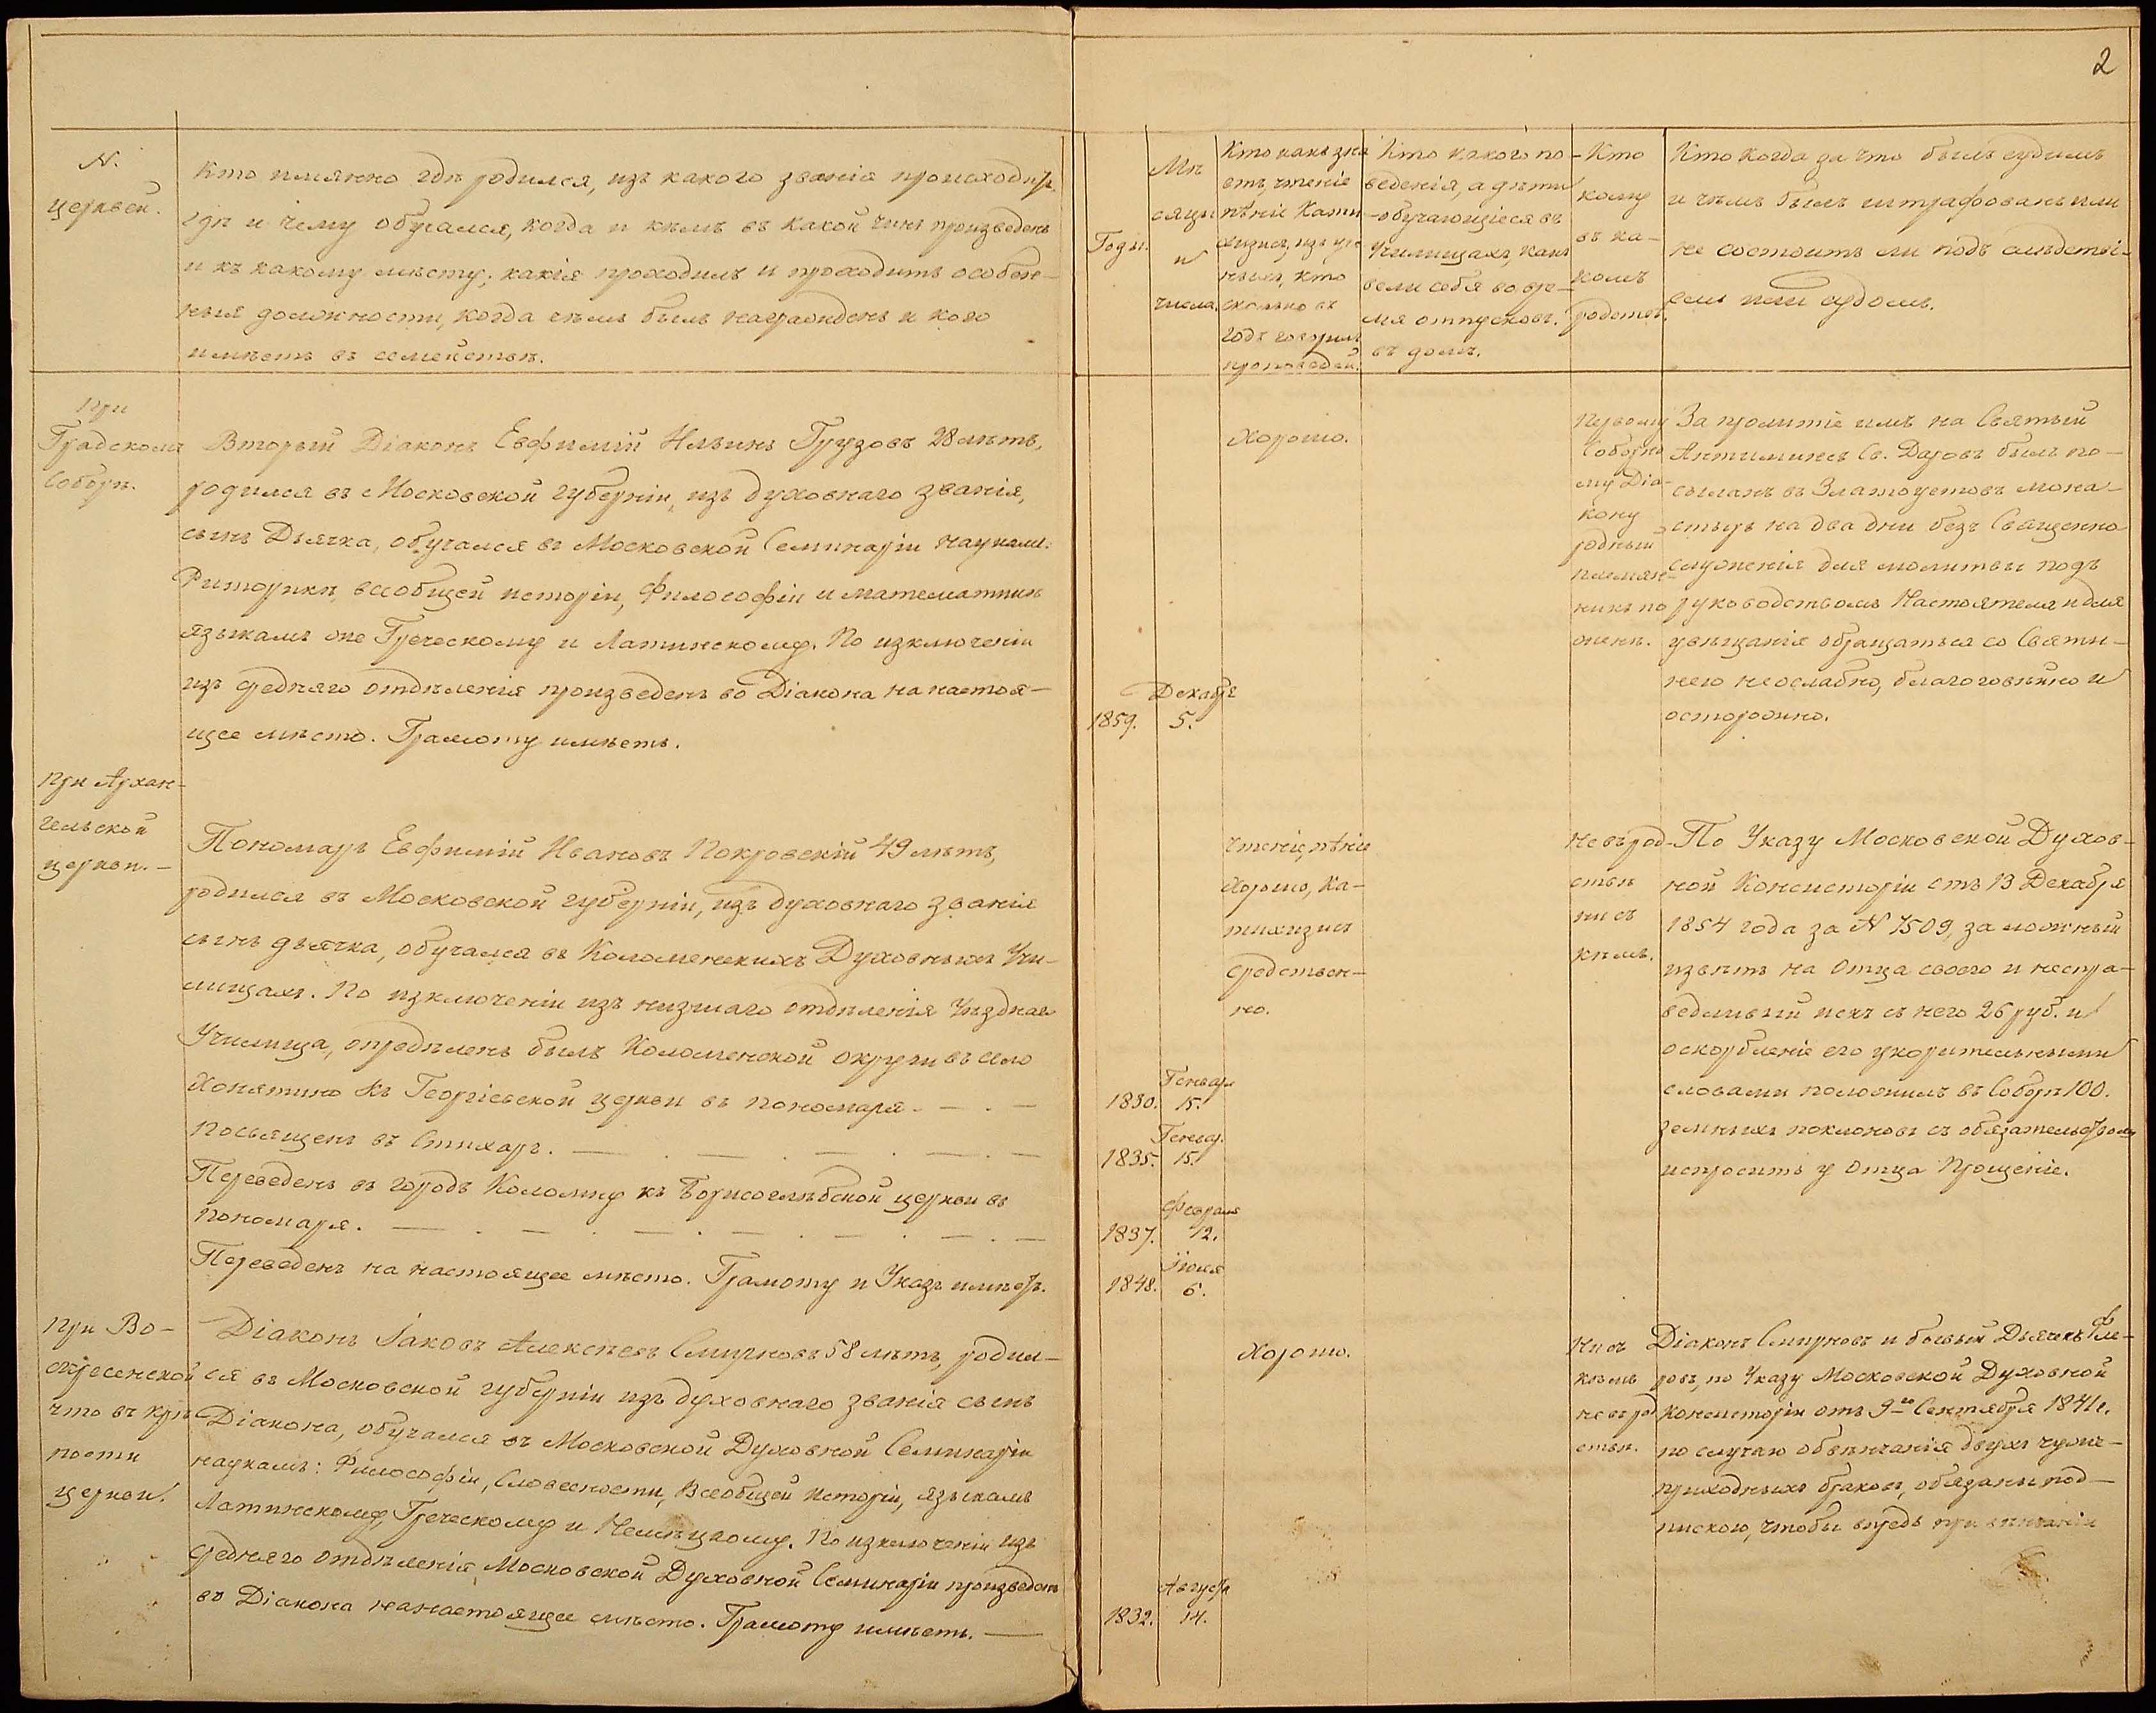 2
N.
церквей.
Кто имянно гдѣ родился, изъ какого званія происходитъ,
гдѣ и чему обучался, когда и кѣмъ въ какой чинъ произведенъ
и къ какому мѣсту; какія проходилъ и проходитъ особен-
ныя должности, когда чѣмъ былъ награжденъ и кого
имѣетъ въ семействѣ.
Годы.
Мѣ
сяцы
и
числа.
Кто какъ зна
етъ, чтеніе
пѣніе Кати
хизисъ, изъ уче
ныхъ, кто
сколько въ
годъ говорилъ
проповѣдей.
Кто какого по-
веденія, а дѣти
обучающіеся въ
Училищахъ, какъ
вели себя во вре-
мя отпусковъ.
въ домъ.
Кто
кому
въ ка-
комъ
родствѣ.
Кто когда за что былъ судимъ
и чѣмъ былъ штрафованъ или
не состоитъ ли подъ слѣдстві-
емъ или судомъ.
При
Градскомъ
Соборѣ.
Вторый Діаконъ Евфимій Ильинъ Грузовъ 28 лѣтъ,
родился въ Московской губерніи, изъ духовнаго званія,
сынъ Дьячка, обучался въ Московской Семинаріи наукамъ:
Риторикѣ, всеобщей исторіи, Философіи и математикѣ
языкамъ же Греческому и Латинскому. По изключеніи
изъ средняго отдѣленія произведенъ во Діакона на настоя-
щее мѣсто. Грамоту имѣетъ.
1859.
Декабря
5.
Хорошо.
Первому
Соборно
му Діа-
кону
родный
племян-
никъ по
женѣ.
За пролитіе имъ на Святый
Антиминсъ Св. Даровъ былъ по-
сыланъ въ Златоустовъ мона-
стырь на два дни безъ Священно
служенія для молитвы подъ
руководствомъ Настоятеля и для
увѣщанія обращаться со Святы-
нею неослабно, благоговѣйно и
осторожно.
При Архан-
гельской
церкви.-
Пономарь Евфимій Ивановъ Покровскій 49 лѣтъ,
родился въ Московской губерніи, изъ духовнаго званія
сынъ дьячка, обучался въ Коломенскихъ Духовныхъ Учи-
лищахъ. По изключеніи изъ низшаго отдѣленія Уѣзднаго
Училища, опредѣленъ былъ Коломенской округи въ село
Хонятино къ Георгіевской церкви въ пономаря. — . —
Посвященъ въ Стихарь. — . — . — . — . —
Переведенъ въ городъ Коломну къ Борисоглѣбской церкви въ
пономаря. — . — . — . — . — . — . —
Переведенъ на настоящее мѣсто. Грамоту и Указъ имѣетъ.
1830.
Генвар
15.
1835.
Генвар.
15.
1837.
Февраля
12.
1848.
Іюля
6.
Чтеніе, пѣніе
Хорошо, Ка-
тихизисъ
средствен-
но.
Не въ род-
ствѣ
ни съ
кѣмъ.
По Указу Московской Духов-
ной Консисторіи отъ 13 Декабря
1854 года за N 7509, за ложный
извѣтъ на Отца своего и неспра-
ведливый искъ съ него 26 руб. и
оскорбленіе его укорительными
словами положилъ въ Соборѣ 100.
земныхъ поклоновъ съ обязательствомъ
испросить у Отца Прощеніе.
При Во-
скресенской
что въ крѣ
пости
церкви.
Діаконъ Іаковъ Алексѣевъ Смирновъ 58 лѣтъ, родил-
ся въ Московской губерніи изъ духовнаго званія сынъ
Діакона, обучался въ Московской Духовной Семинаріи
наукамъ: Философіи, Словесности, Всеобщей Исторіи, языкамъ
Латинскому, Греческому и Немѣцкому. По изключеніи изъ
средняго отдѣленія Московской Духовной Семинаріи произведенъ
въ Діакона на настоящее мѣсто. Грамоту имѣетъ. —
1832.
Августа
14.
Хорошо.
Ни съ
кѣмъ
не въ род
ствѣ.
Діаконъ Смирновъ и бывый Дьячекъ Фле-
ровъ, по Указу Московской Духовной
Консисторіи отъ 9-го Сентября 1841 г.
по случаю обвѣнчанія двухъ чужо-
приходныхъ браковъ, обязаны под-
пискою, чтобы впредь при вѣнчаніи